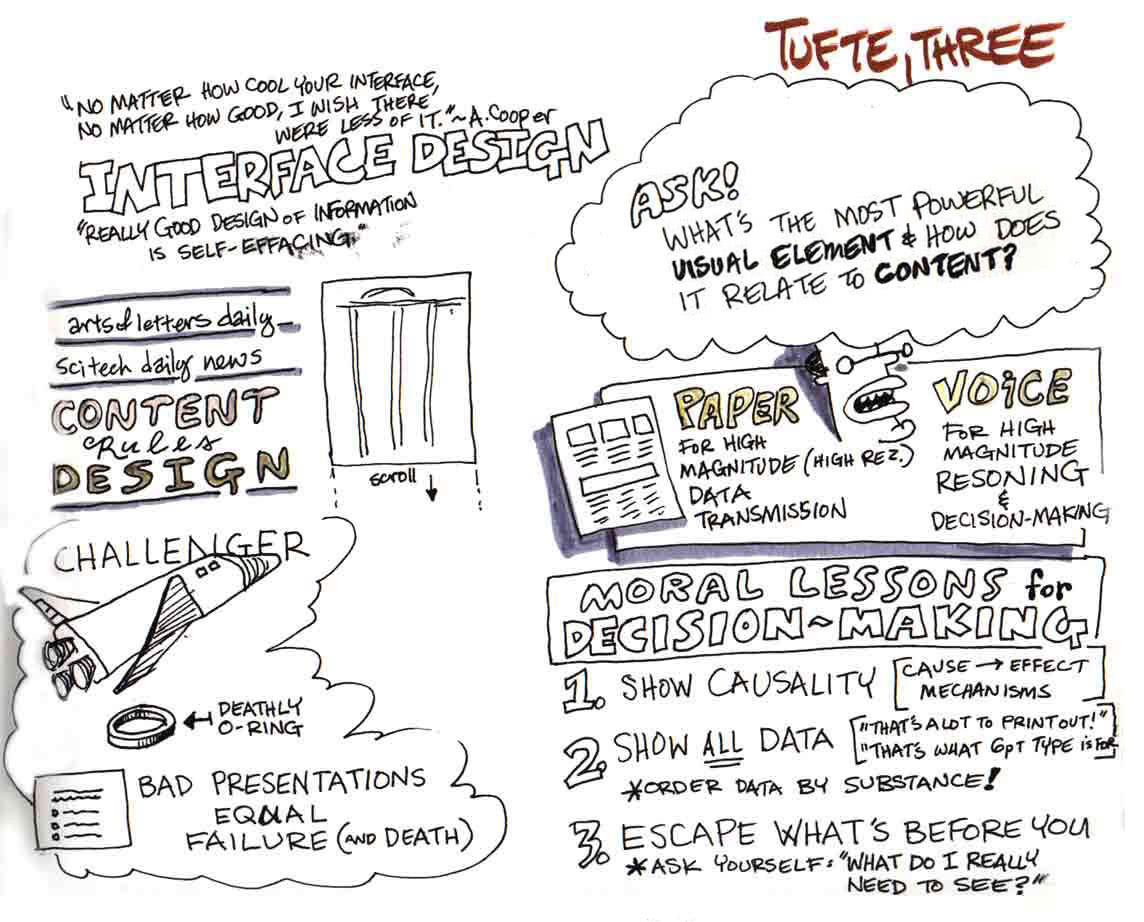 TUFTE, THREE
"NO MATTER HOW COOL YOUR INTERFACE,
NO MATTER HOW GOOD, I WISH THERE
WERE LESS OF IT." ~ A. Cooper
INTERFACE DESIGN
"REALLY GOOD DESIGN OF INFORMATION
IS SELF-EFFACING."
arts & letters daily
scitech daily news
CONTENT
Rules
DESIGN
scroll
CHALLENGER
DEATHLY
O-RING
BAD PRESENTATIONS
EQUAL
FAILURE (AND DEATH)
ASK!
WHAT'S THE MOST POWERFUL
VISUAL ELEMENT & HOW DOES
IT RELATE TO CONTENT?
PAPER
FOR HIGH
MAGNITUDE (HIGH REZ.)
DATA
TRANSMISSION
VOICE
FOR HIGH
MAGNITUDE
RESONING
&
DECISION-MAKING
MORAL LESSONS for
DECISION~MAKING
1. SHOW CAUSALITY [CAUSE → EFFECT
MECHANISMS
2. SHOW ALL DATA ["THAT'S A LOT TO PRINT OUT!"
"THAT'S WHAT 6pt TYPE is FOR
*ORDER DATA BY SUBSTANCE!
3. ESCAPE WHAT'S BEFORE YOU
*ASK YOURSELF: "WHAT DO I REALLY
NEED TO SEE?"